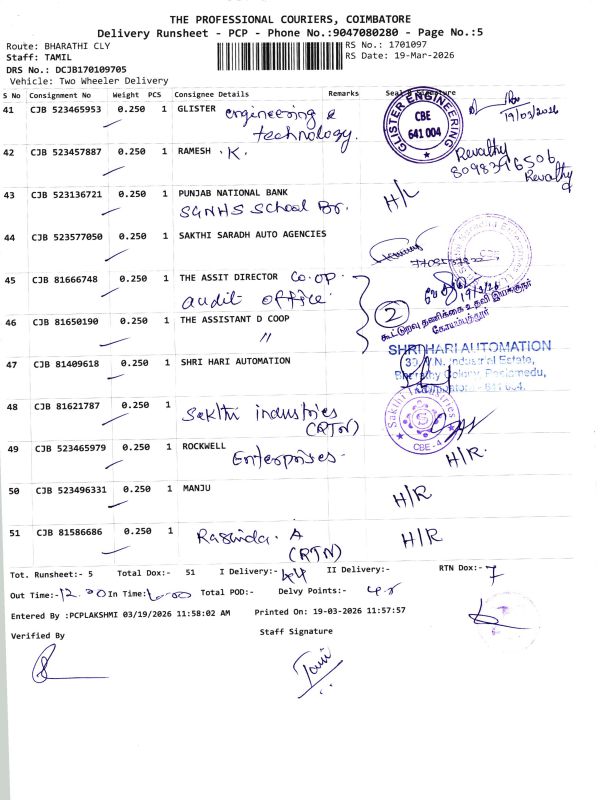 THE PROFESSIONAL COURIERS, COIMBATORE
Delivery Runsheet - PCP - Phone No.:9047080280 - Page No.:5
Route: BHARATHI CLY
RS No.: 1701097
Staff: TAMIL
RS Date: 19-Mar-2026
DRS No.: DCJB170109705
Vehicle: Two Wheeler Delivery
S No Consignment No Weight PCS Consignee Details Remarks Seal & Signature
41 CJB 523465953 0.250 1 GLISTER engineering & technology.
GLISTER ENGINEERING
CBE
641 004
19/03/2026
42 CJB 523457887 0.250 1 RAMESH . K.
Revathy
8098396506
Revathy
43 CJB 523136721 0.250 1 PUNJAB NATIONAL BANK
SGNHS School Br.
H/L
44 CJB 523577050 0.250 1 SAKTHI SARADH AUTO AGENCIES
CBE
45 CJB 81666748 0.250 1 THE ASSIT DIRECTOR CO.OP.
audit office.
19/3/26
2
கூட்டுறவு தணிக்கை உதவி இயக்குநர்
கோயம்புத்தூர்
46 CJB 81650190 0.250 1 THE ASSISTANT D COOP
"
47 CJB 81409618 0.250 1 SHRI HARI AUTOMATION
SHRI HARI AUTOMATION
Industrial Estate,
Bharathy Colony, Peelamedu,
Coimbatore - 641 004.
48 CJB 81621787 0.250 1 Sakthi industries
(RTN)
Sakthi Industries
CBE-4
49 CJB 523465979 0.250 1 ROCKWELL
Enterprises.
H/R.
50 CJB 523496331 0.250 1 MANJU
H/R
51 CJB 81586686 0.250 1 A
(RTN)
H/R
Tot. Runsheet:- 5 Total Dox:- 51 I Delivery:- 44 II Delivery:- RTN Dox:- 7
Out Time:- 12.00 In Time:- 6.00 Total POD:- Delvy Points:-
Entered By :PCPLAKSHMI 03/19/2026 11:58:02 AM Printed On: 19-03-2026 11:57:57
Verified By
Staff Signature